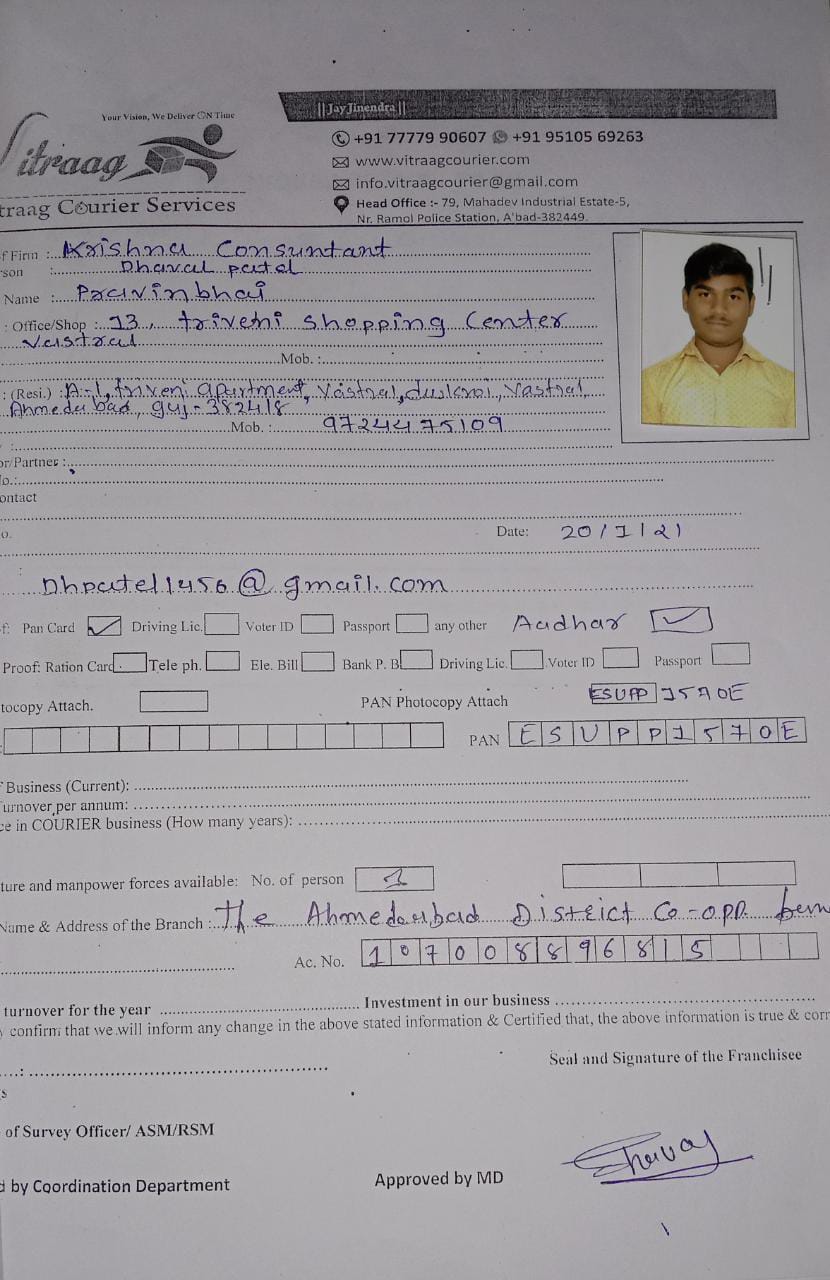 Your Vision, We Deliver ON Time
|| Jay Jinendra ||
+91 77779 90607 +91 95105 69263
www.vitraagcourier.com
info.vitraagcourier@gmail.com
Head Office :- 79, Mahadev Industrial Estate-5,
Nr. Ramol Police Station, A'bad-382449.
itraag
traag Courier Services
f Firm : Krishna Consuntant
son : Dhaval patel
Name : Pravinbhai
: Office/Shop : 13, triveni shopping Center
Vastral
Mob. :
: (Resi.) : A-1, triveni apartment, Vastral, duskroi, Vastral,
Ahmedabad, guj-382418
Mob. : 9724475109
or/Partner :
o.:
ontact
o.
Date: 20/1/21
Dhpatel1456@gmail.com
f: Pan Card Driving Lic. Voter ID Passport any other Aadhar
Proof: Ration Card Tele ph. Ele. Bill Bank P. B Driving Lic. Voter ID Passport
tocopy Attach. PAN Photocopy Attach ESUPP 1570E
PAN ESUPP1570E
f Business (Current):
urnover per annum:
ce in COURIER business (How many years):
ture and manpower forces available: No. of person 1
Name & Address of the Branch : The Ahmedabad District Co-opp.
Ac. No. 107008896815
turnover for the year Investment in our business
y confirm that we will inform any change in the above stated information & Certified that, the above information is true & corr
Seal and Signature of the Franchisee
s
of Survey Officer/ ASM/RSM
d by Coordination Department
Approved by MD